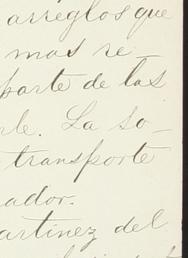 arreglos que
mas re-
parte de las
La so-
transporte
ador.
artinez del